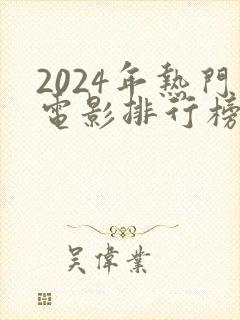 2024年熱門
電影排行榜
吴偉業